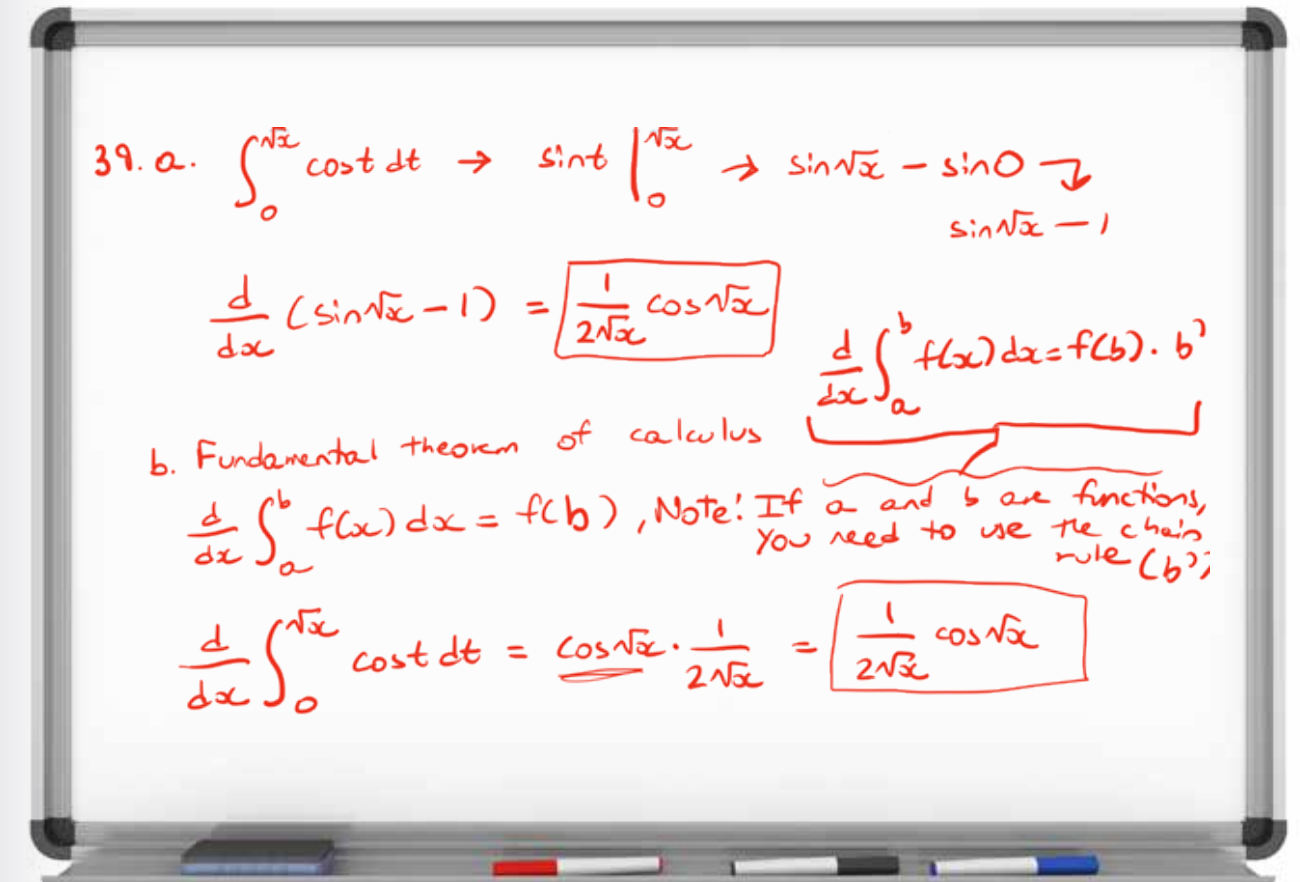 39. a. ∫₀^√x cost dt → sint |₀^√x → sin√x − sin0
sin√x − 1
d/dx (sin√x − 1) = 1/(2√x) cos√x
d/dx ∫ₐᵇ f(x) dx = f(b) . b'
b. Fundamental theorem of calculus
d/dx ∫ₐᵇ f(x) dx = f(b), Note! If a and b are functions,
You need to use the chain
rule (b')
d/dx ∫₀^√x cost dt = cos√x · 1/(2√x) = 1/(2√x) cos√x